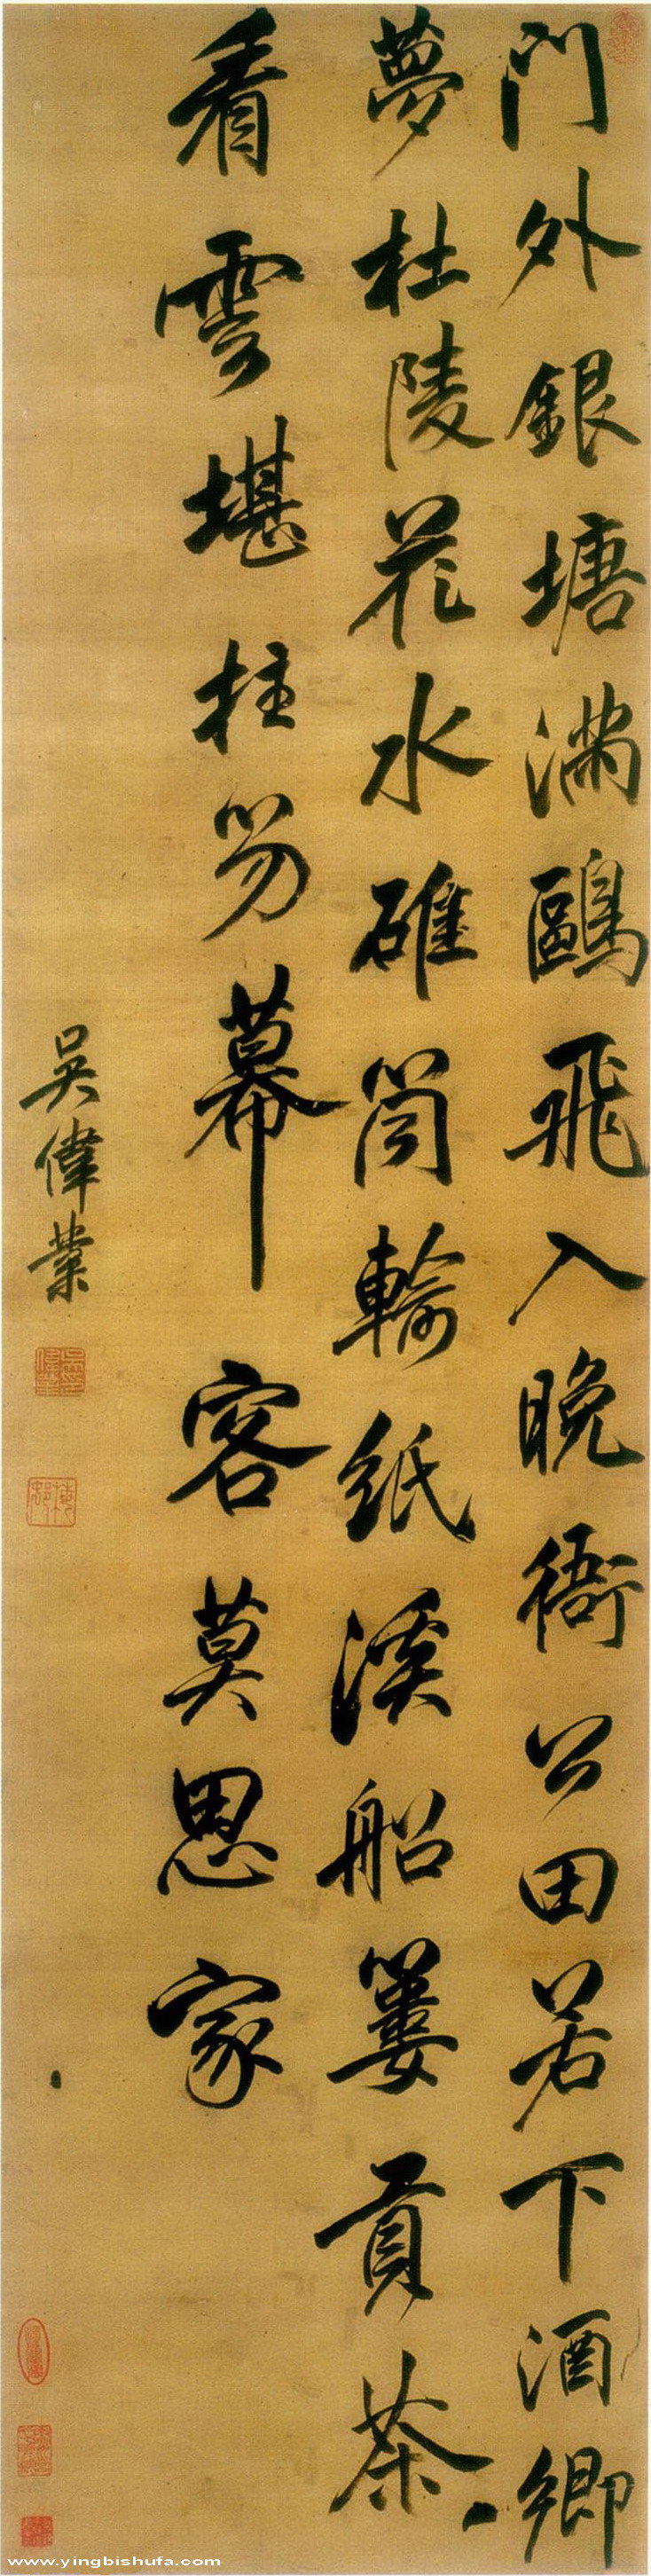 門外銀塘滿鷗飛入晚衙公田若下酒鄉
夢杜陵花水碓筒輸紙溪船簍貢茶
看雲堪拄笏幕客莫思家
吳偉業
梅村
www.yingbishufa.com